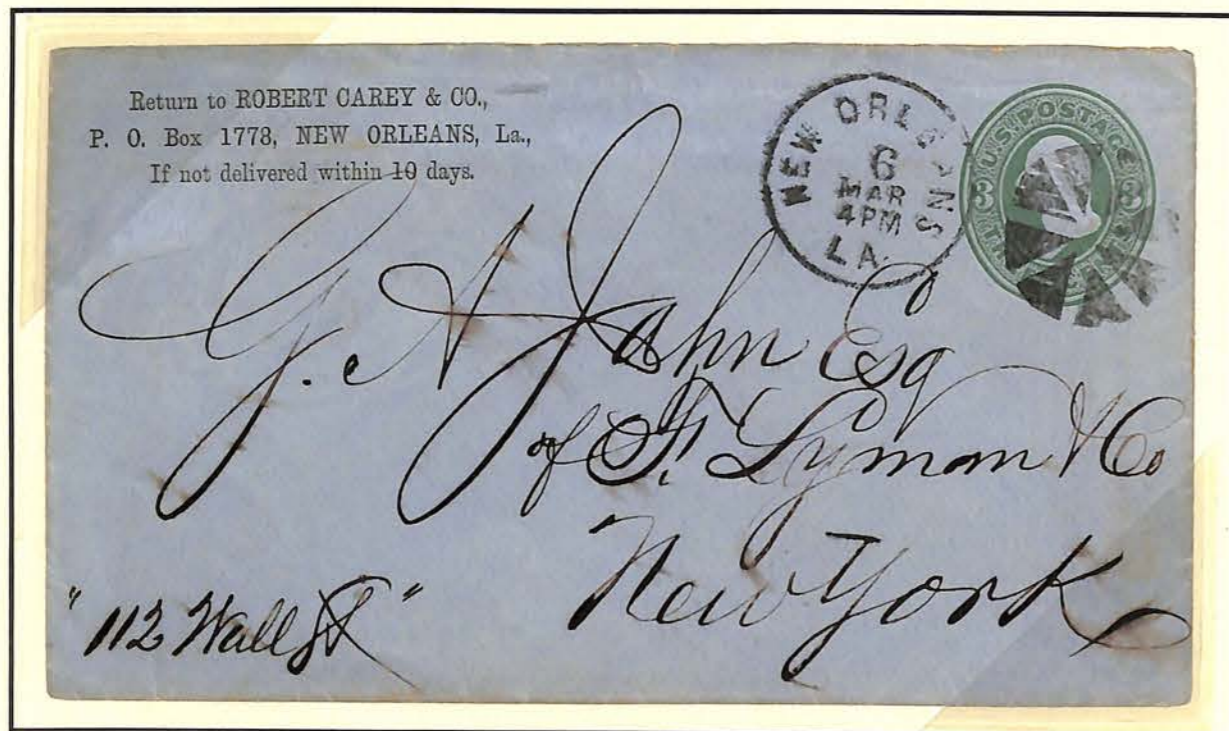 Return to ROBERT CAREY & CO.,
P. O. Box 1778, NEW ORLEANS, La.,
If not delivered within 10 days.
NEW ORLEANS
6
MAR
4PM
LA.
U.S. POSTAGE
3 3
G. A Jahn Esq
of F. Lyman & Co
New York
"112 Wall St"